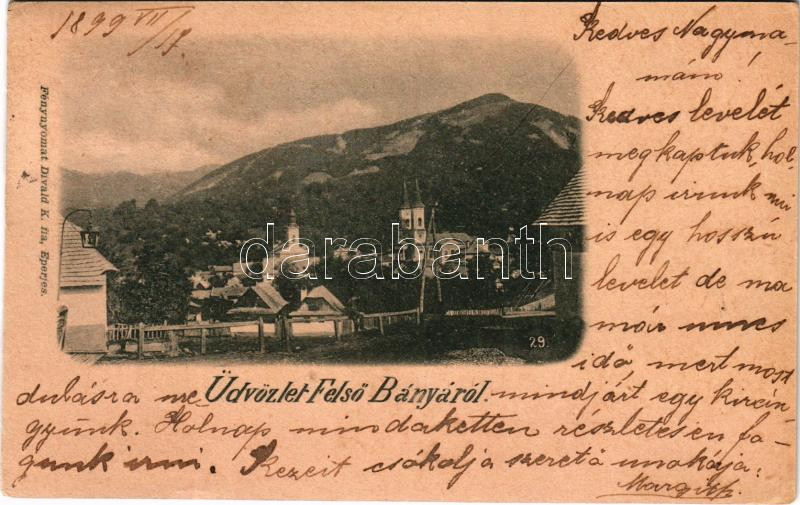 1899 VII/17.
Kedves Nagyma-
mám!
Kedves levelét
megkaptuk, hol-
nap irunk mi
is egy hosszú
levelet de ma
már nincs
idő, mert most
mindjárt egy kirán-
dulásra me
gyünk. Holnap mindaketten részletesen fo-
gunk irni. Kezeit csókolja szerető unokája:
Margith.
Üdvözlet Felső Bányáról.
Fénynyomat Divald K. fia, Eperjes.
29.
darabanth